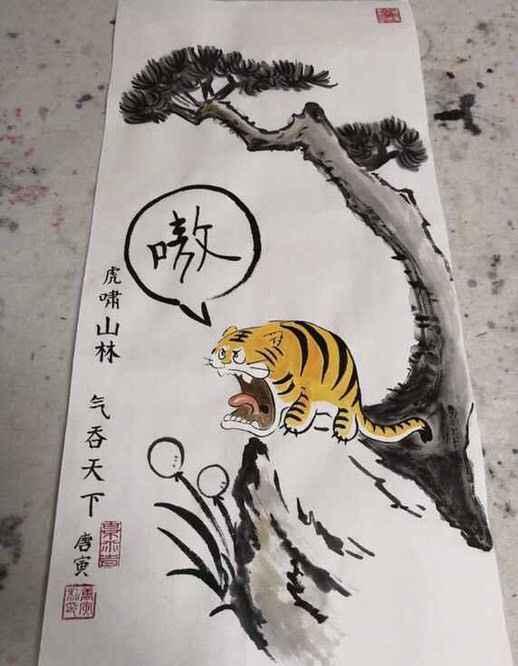 嗷
虎啸山林
气吞天下
唐寅